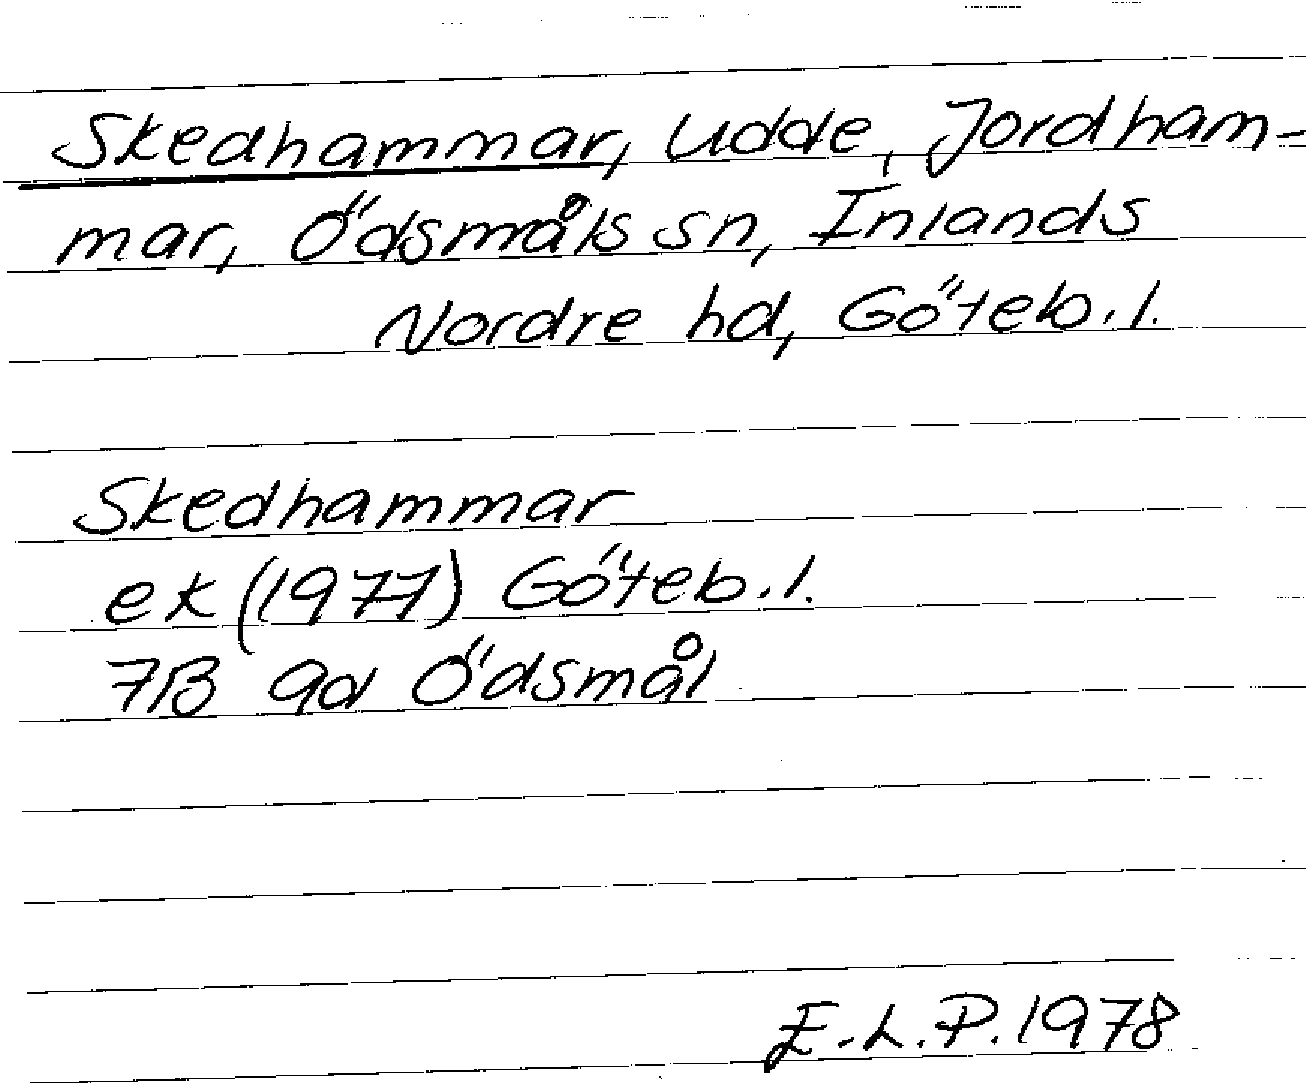 Skedhammar, udde, Jordham-
mar, Ödsmåls sn, Inlands
Nordre hd, Göteb.l.
Skedhammar
ek (1977) Göteb.l.
7B 9d Ödsmål
E.L.P. 1978